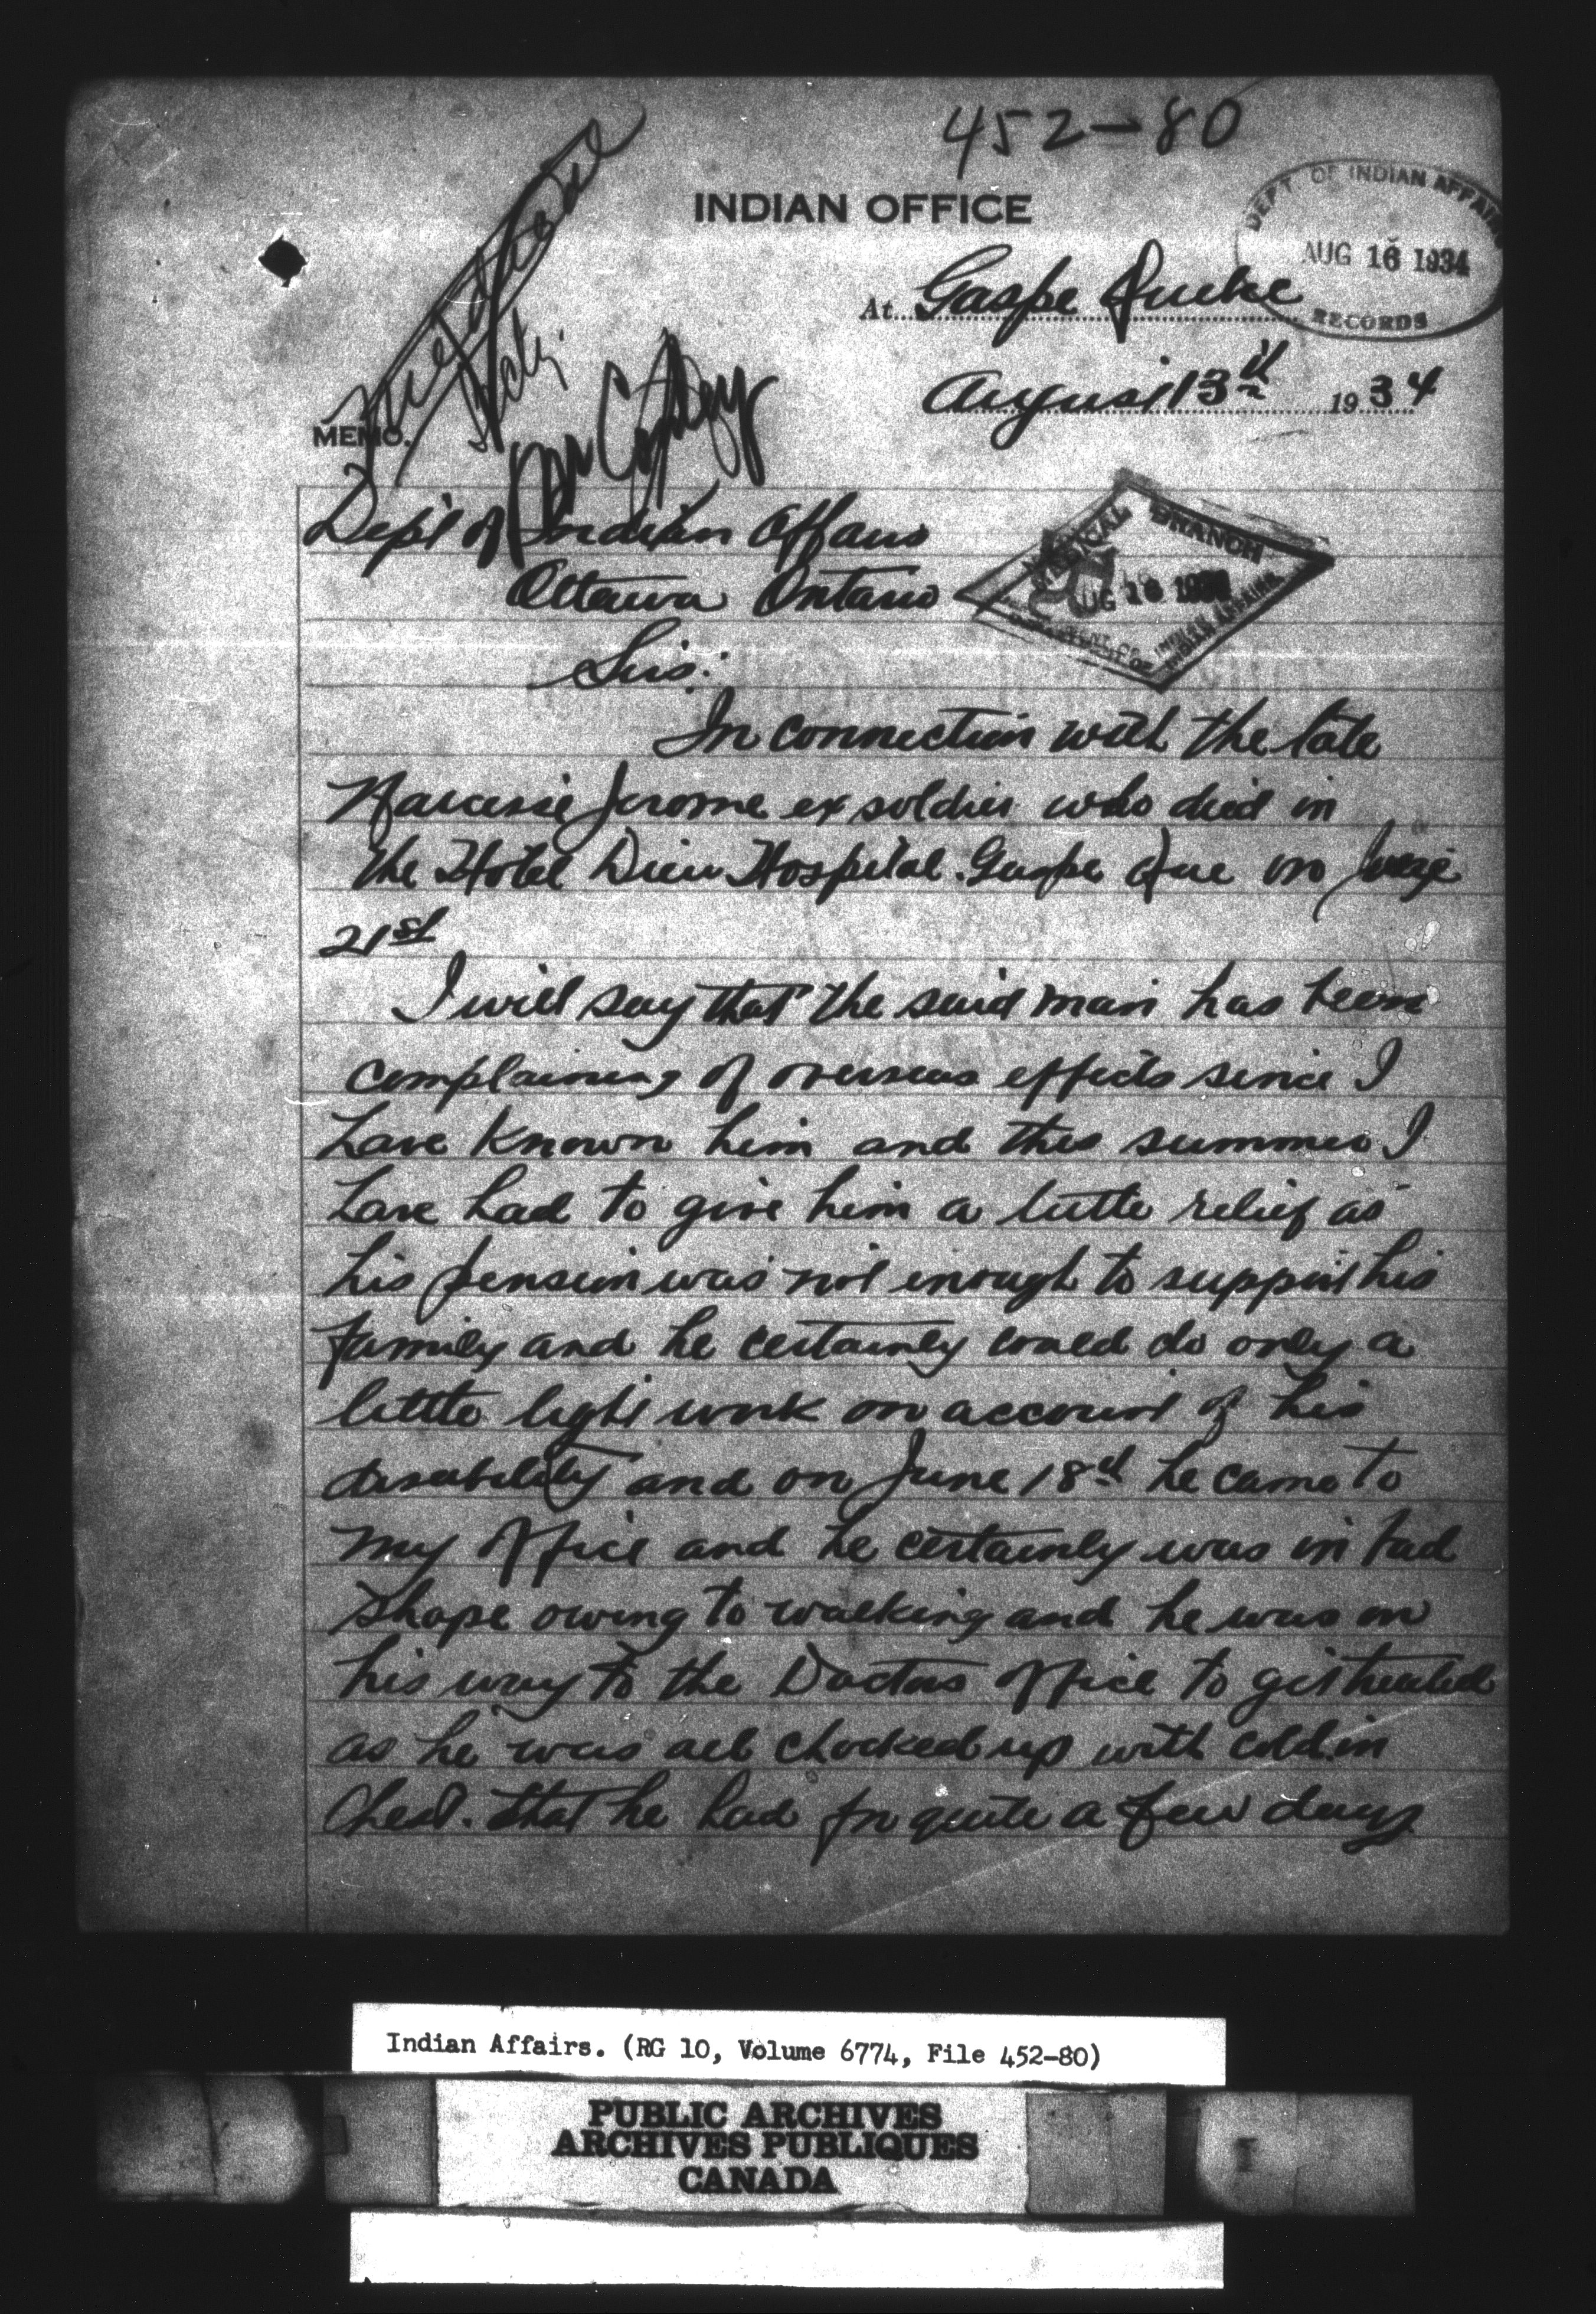 452-80
INDIAN OFFICE
DEPT. OF INDIAN AFFAIRS
AUG 16 1934
RECORDS
At Gaspe Quebec
August 13th 1934
MEMO.
Dep't of Indian Affairs
Ottawa Ontario
MEDICAL BRANCH
AUG 16
INDIAN AFFAIRS
Sirs:
In connection with the late
Narcisse Jerome ex soldier who died in
the Hotel Dieu Hospital. Gaspe Que on June
21st
I will say that the said man has been
complaining of overseas effects since I
have known him and this summer I
have had to give him a little relief as
his pension was not enough to support his
family and he certainly could do only a
little light work on account of his
disability and on June 18th he came to
my office and he certainly was in bad
shape owing to walking and he was on
his way to the Doctors office to get treated
as he was all chocked up with cold in
chest. that he had for quite a few days
Indian Affairs. (RG 10, Volume 6774, File 452-80)
PUBLIC ARCHIVES
ARCHIVES PUBLIQUES
CANADA